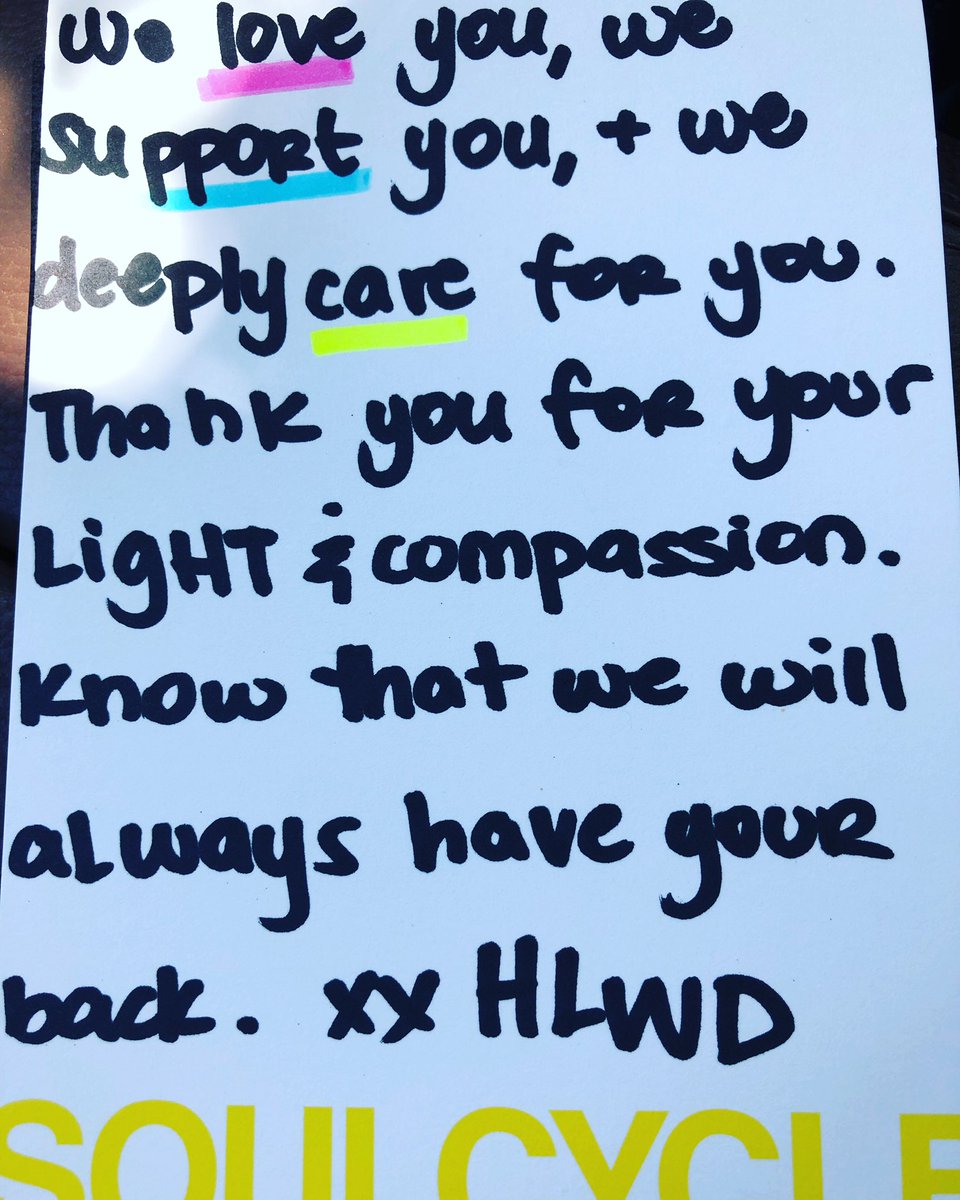 we love you, we
support you, + we
deeply care for you.
Thank you for your
LigHT & compassion.
Know that we will
always have your
back. xx HLWD
SOULCYCLE